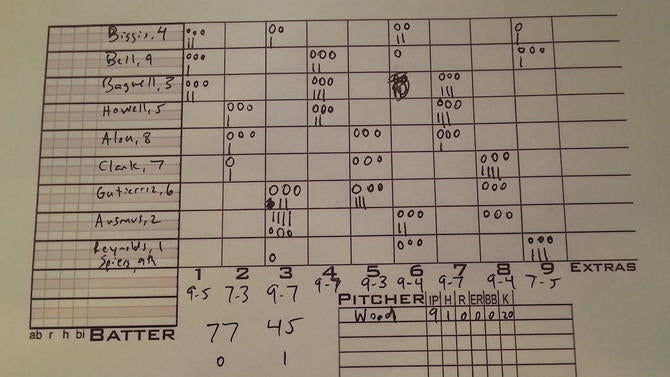 Biggio, 4
Bell, 9
Bagwell, 3
Howell, 5
Alou, 8
Clark, 7
Gutierrez, 6
Ausmus, 2
Reynolds, 1
Spiers, 9th
1 2 3 4 5 6 7 8 9 EXTRAS
9-5 7-3 9-7 9-7 9-3 9-4 9-7 9-4 7-5
PITCHER IP H R ER BB K
Wood 9 1 0 0 0 20
ab r h bi BATTER
77 45
0 1